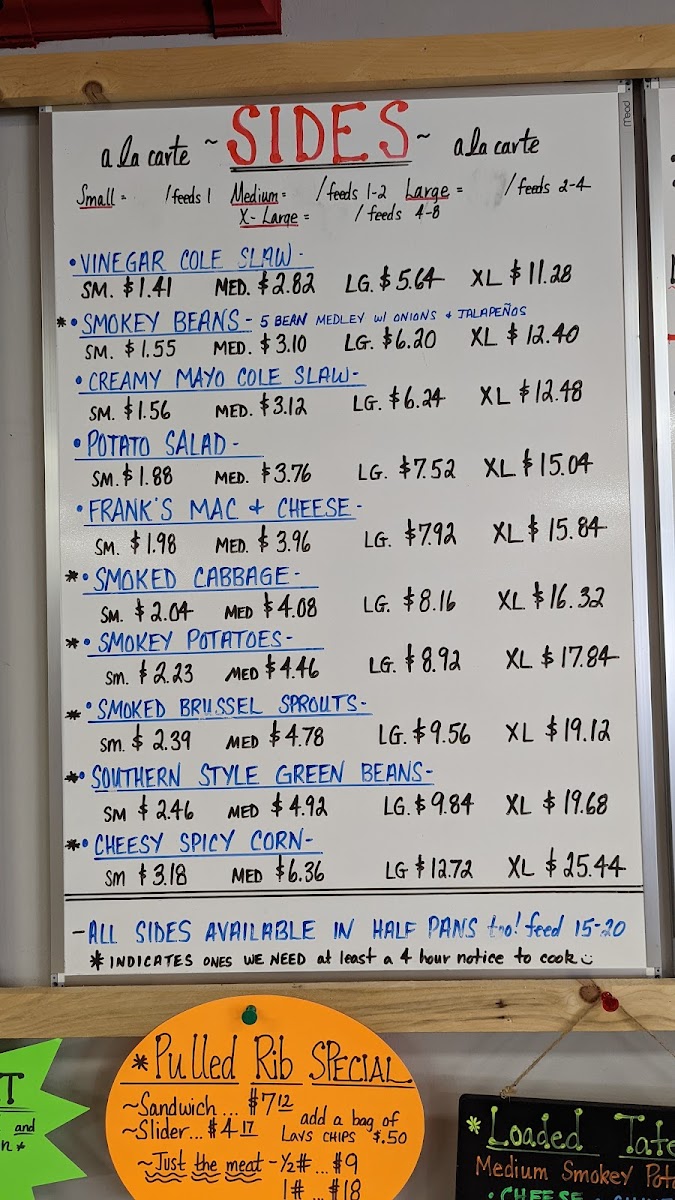 Mead
~ SIDES ~
a la carte a la carte
Small = /feeds 1 Medium = /feeds 1-2 Large = /feeds 2-4
X-Large = / feeds 4-8
• VINEGAR COLE SLAW -
SM. $1.41 MED. $2.82 LG. $5.64 XL $11.28
* • SMOKEY BEANS - 5 BEAN MEDLEY w/ ONIONS & JALAPEÑOS
SM. $1.55 MED. $3.10 LG. $6.20 XL $12.40
• CREAMY MAYO COLE SLAW -
SM. $1.56 MED. $3.12 LG. $6.24 XL $12.48
• POTATO SALAD -
SM. $1.88 MED. $3.76 LG. $7.52 XL $15.04
• FRANK'S MAC & CHEESE -
SM. $1.98 MED. $3.96 LG. $7.92 XL $15.84
* • SMOKED CABBAGE -
SM. $2.04 MED $4.08 LG. $8.16 XL $16.32
* • SMOKEY POTATOES -
Sm. $2.23 MED $4.46 LG. $8.92 XL $17.84
* • SMOKED BRUSSEL SPROUTS -
Sm. $2.39 MED $4.78 LG. $9.56 XL $19.12
* • SOUTHERN STYLE GREEN BEANS -
SM $2.46 MED $4.92 LG. $9.84 XL $19.68
* • CHEESY SPICY CORN -
SM $3.18 MED $6.36 LG $12.72 XL $25.44
- ALL SIDES AVAILABLE IN HALF PANS too! feed 15-20
* INDICATES ONES WE NEED at least a 4 hour notice to cook
* Pulled Rib SPECIAL
~Sandwich... $7 12
~Slider... $4 17
add a bag of
LAYS CHIPS $.50
~Just the meat - ½# ... $9
1# ... $18
T
and
n*
* Loaded Tate
Medium Smokey Pota
• CHEESE